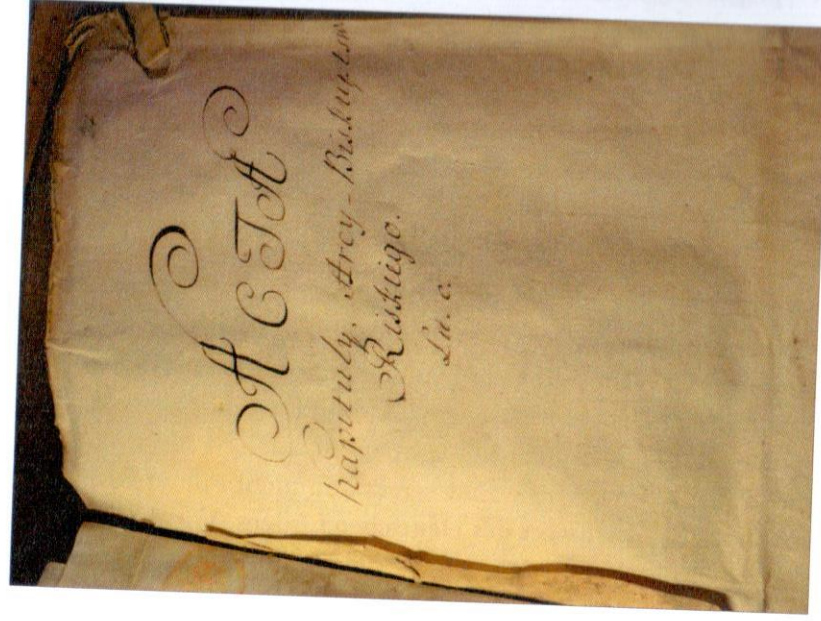 ACTA
kapituły. Arcy-Biskupstw
Ryskiego.
Lit. C.